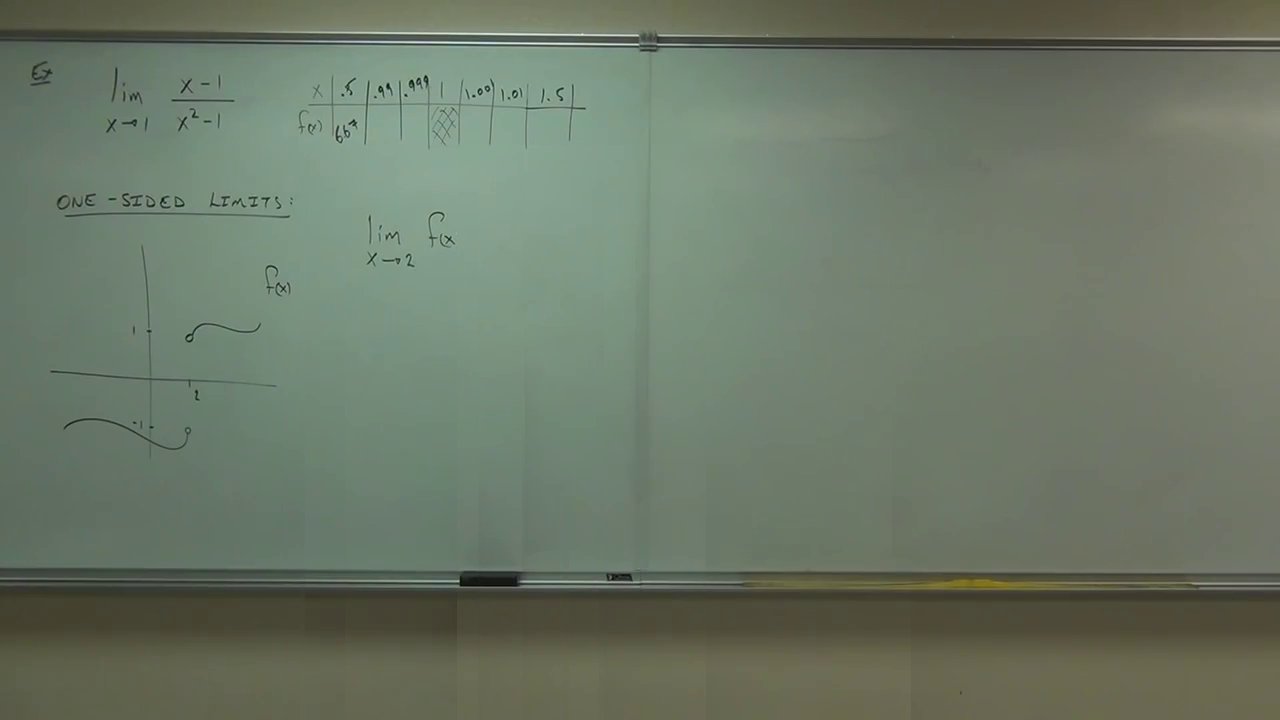 Ex lim x→1 x-1 / x²-1
x .5 .99 .999 1 1.001 1.01 1.5
f(x)
ONE-SIDED LIMITS:
lim x→2 f(x
f(x)
1
2
-1